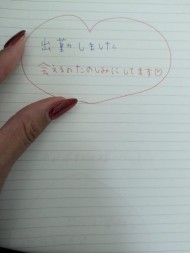 出勤しました
会えるのたのしみにしてます♡